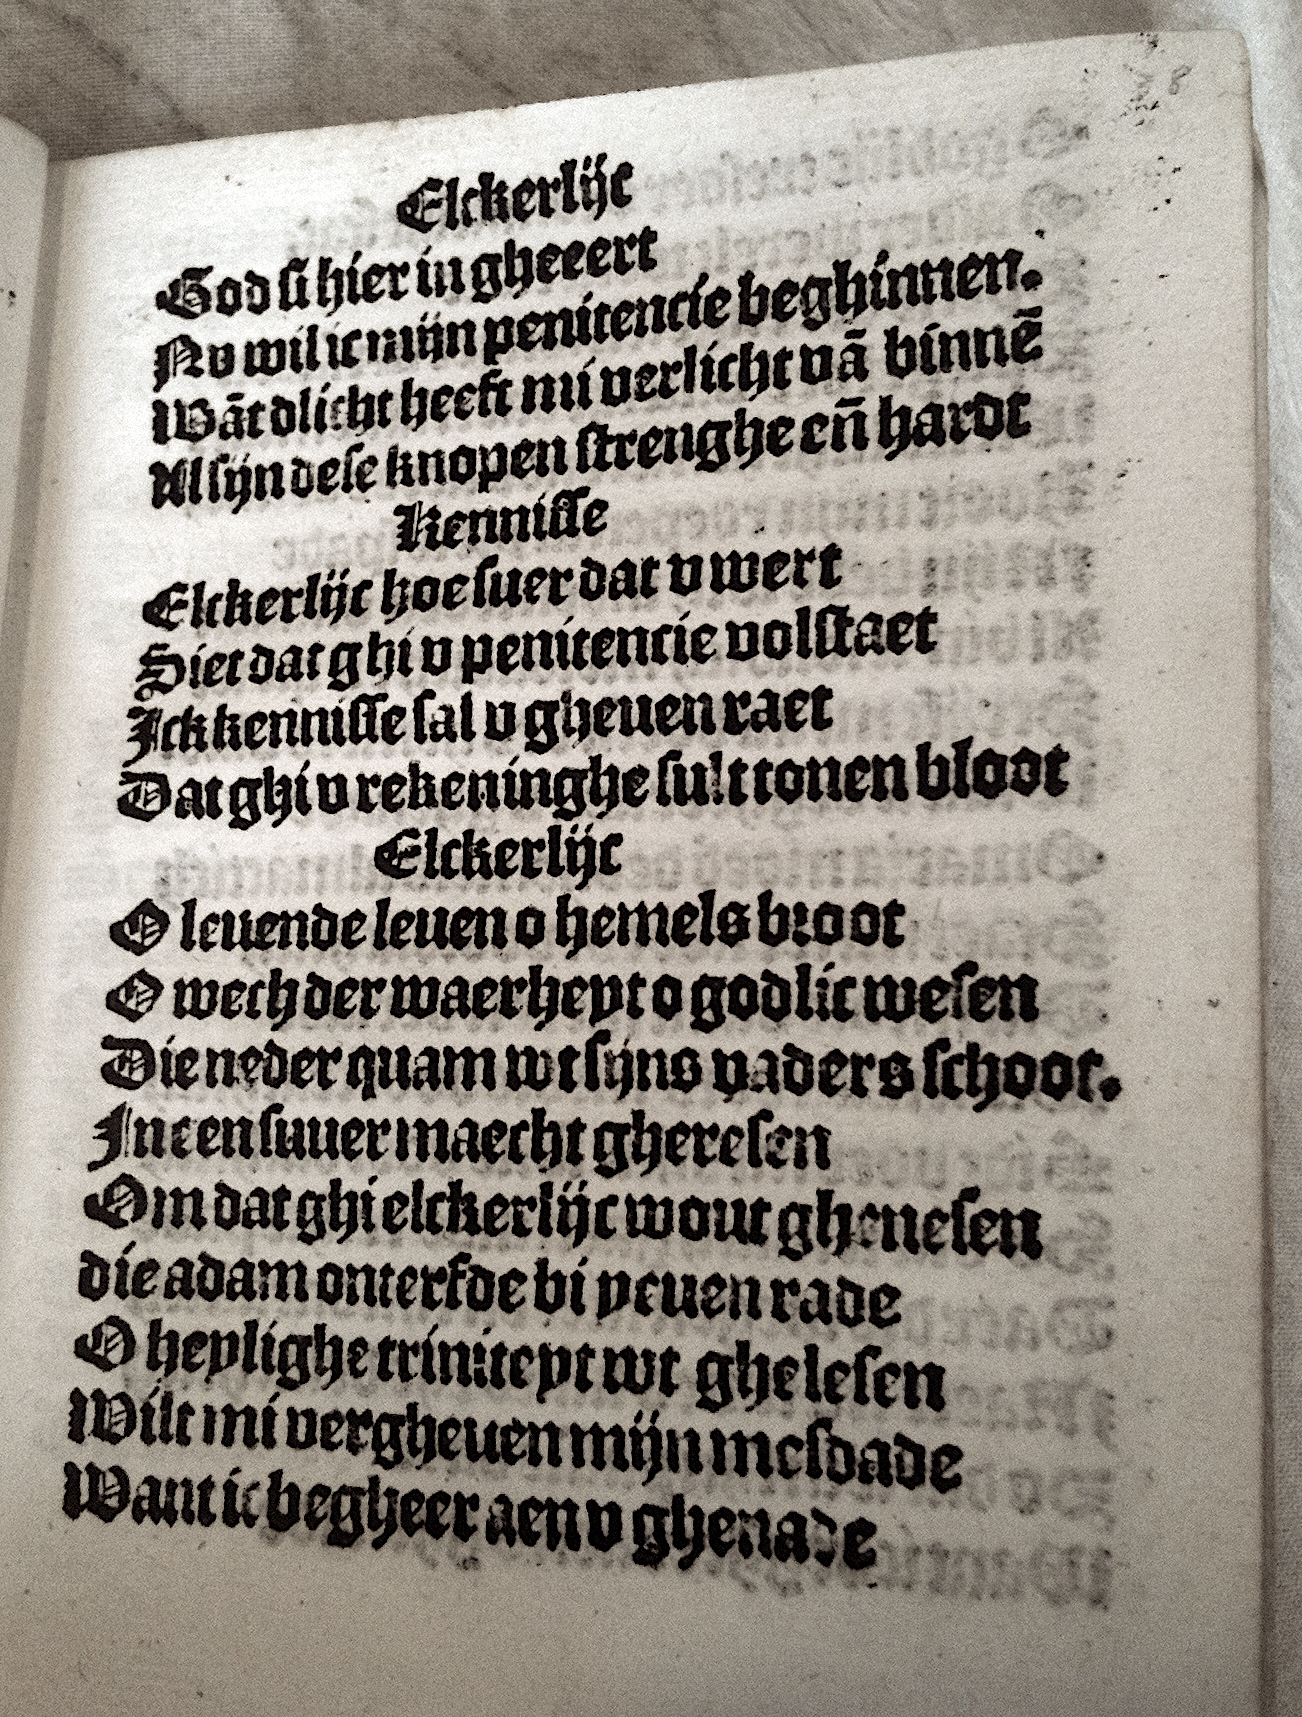 Elckerlijc
God si hier in gheeert
Nv wil ic mijn penitencie beghinnen.
Wāt dlicht heeft mi verlicht vā binnē
Al sijn dese knopen strenghe eñ hardt
Kennisse
Elckerlijc hoe suer dat v wert
Siet dat ghi v penitencie volstaet
Jck kennisse sal v gheuen raet
Dat ghi v rekeninghe sult tonen bloot
Elckerlijc
O leuende leuen o hemels broot
O wech der waerheyt o godlic wesen
Die neder quam wt sijns vaders schoot.
Jn een suuer maecht gheresen
Om dat ghi elckerlijc wout ghenesen
die adam onterfde bi yeuen rade
O heylighe triniteyt wt ghelesen
Wilt mi vergheuen mijn mesdade
Want ic begheer aen v ghenade
8